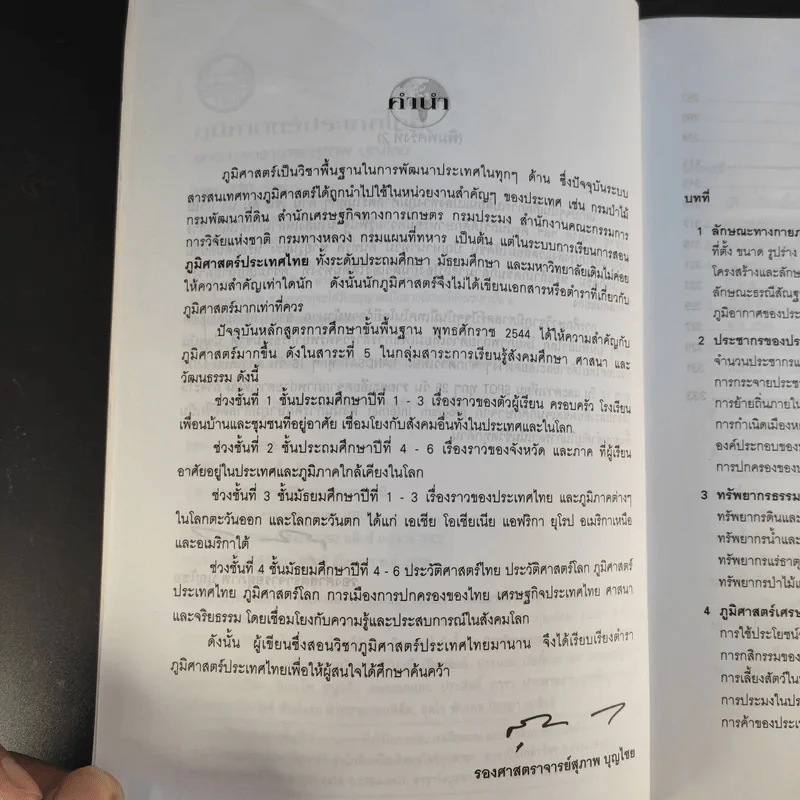 คำนำ
ภูมิศาสตร์เป็นวิชาพื้นฐานในการพัฒนาประเทศในทุกๆ ด้าน ซึ่งปัจจุบันระบบ
สารสนเทศทางภูมิศาสตร์ได้ถูกนำไปใช้ในหน่วยงานสำคัญๆ ของประเทศ เช่น กรมป่าไม้
กรมพัฒนาที่ดิน สำนักเศรษฐกิจทางการเกษตร กรมประมง สำนักงานคณะกรรมการ
การวิจัยแห่งชาติ กรมทางหลวง กรมแผนที่ทหาร เป็นต้น แต่ในระบบการเรียนการสอน
ภูมิศาสตร์ประเทศไทย ทั้งระดับประถมศึกษา มัธยมศึกษา และมหาวิทยาลัยเดิมไม่ค่อย
ให้ความสำคัญเท่าใดนัก ดังนั้นนักภูมิศาสตร์จึงไม่ได้เขียนเอกสารหรือตำราที่เกี่ยวกับ
ภูมิศาสตร์มากเท่าที่ควร
ปัจจุบันหลักสูตรการศึกษาขั้นพื้นฐาน พุทธศักราช 2544 ได้ให้ความสำคัญกับ
ภูมิศาสตร์มากขึ้น ดังในสาระที่ 5 ในกลุ่มสาระการเรียนรู้สังคมศึกษา ศาสนา และ
วัฒนธรรม ดังนี้
ช่วงชั้นที่ 1 ชั้นประถมศึกษาปีที่ 1 - 3 เรื่องราวของตัวผู้เรียน ครอบครัว โรงเรียน
เพื่อนบ้านและชุมชนที่อยู่อาศัย เชื่อมโยงกับสังคมอื่นทั้งในประเทศและในโลก
ช่วงชั้นที่ 2 ชั้นประถมศึกษาปีที่ 4 - 6 เรื่องราวของจังหวัด และภาค ที่ผู้เรียน
อาศัยอยู่ในประเทศและภูมิภาคใกล้เคียงในโลก
ช่วงชั้นที่ 3 ชั้นมัธยมศึกษาปีที่ 1 - 3 เรื่องราวของประเทศไทย และภูมิภาคต่างๆ
ในโลกตะวันออก และโลกตะวันตก ได้แก่ เอเชีย โอเชียเนีย แอฟริกา ยุโรป อเมริกาเหนือ
และอเมริกาใต้
ช่วงชั้นที่ 4 ชั้นมัธยมศึกษาปีที่ 4 - 6 ประวัติศาสตร์ไทย ประวัติศาสตร์โลก ภูมิศาสตร์
ประเทศไทย ภูมิศาสตร์โลก การเมืองการปกครองของไทย เศรษฐกิจประเทศไทย ศาสนา
และจริยธรรม โดยเชื่อมโยงกับความรู้และประสบการณ์ในสังคมโลก
ดังนั้น ผู้เขียนซึ่งสอนวิชาภูมิศาสตร์ประเทศไทยมานาน จึงได้เรียบเรียงตำรา
ภูมิศาสตร์ประเทศไทยเพื่อให้ผู้สนใจได้ศึกษาค้นคว้า
รองศาสตราจารย์สุภาพ บุญไชย
บทที่
1 ลักษณะทางกายภ
ที่ตั้ง ขนาด รูปร่าง
โครงสร้างและลักษ
ลักษณะธรณีสัณฐ
ภูมิอากาศของประ
2 ประชากรของประ
จำนวนประชากรแ
การกระจายประชา
การย้ายถิ่นภายใน
การกำเนิดเมืองห
องค์ประกอบของป
การปกครองของป
3 ทรัพยากรธรรม
ทรัพยากรดินและ
ทรัพยากรน้ำและ
ทรัพยากรแร่ธาตุ
ทรัพยากรป่าไม้แ
4 ภูมิศาสตร์เศรษ
การใช้ประโยชน์
การกสิกรรมของ
การเลี้ยงสัตว์ใน
การประมงในปร
การค้าของประเท